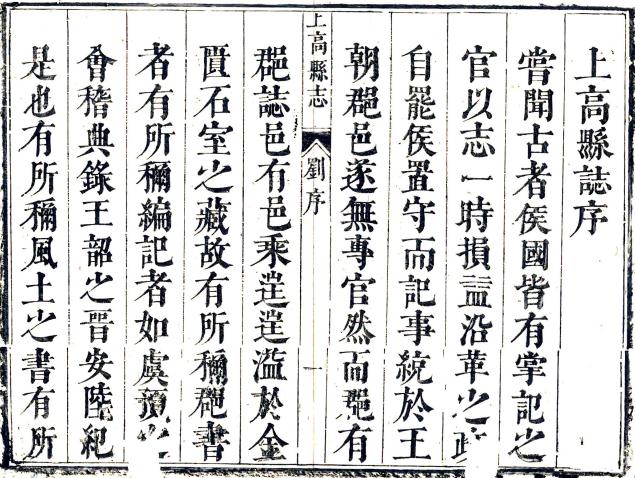 上高縣誌序
嘗聞古者侯國皆有掌記之
官以志一時損益沿革之政
自罷侯置守而記事統於王
朝郡邑遂無專官然而郡有
上高縣志 劉序 一
郡誌邑有邑乘往往濫於金
匱石室之藏故有所稱郡書
者有所稱編記者如虞預之
會稽典錄王韶之晉安陸紀
是也有所稱風土之書有所